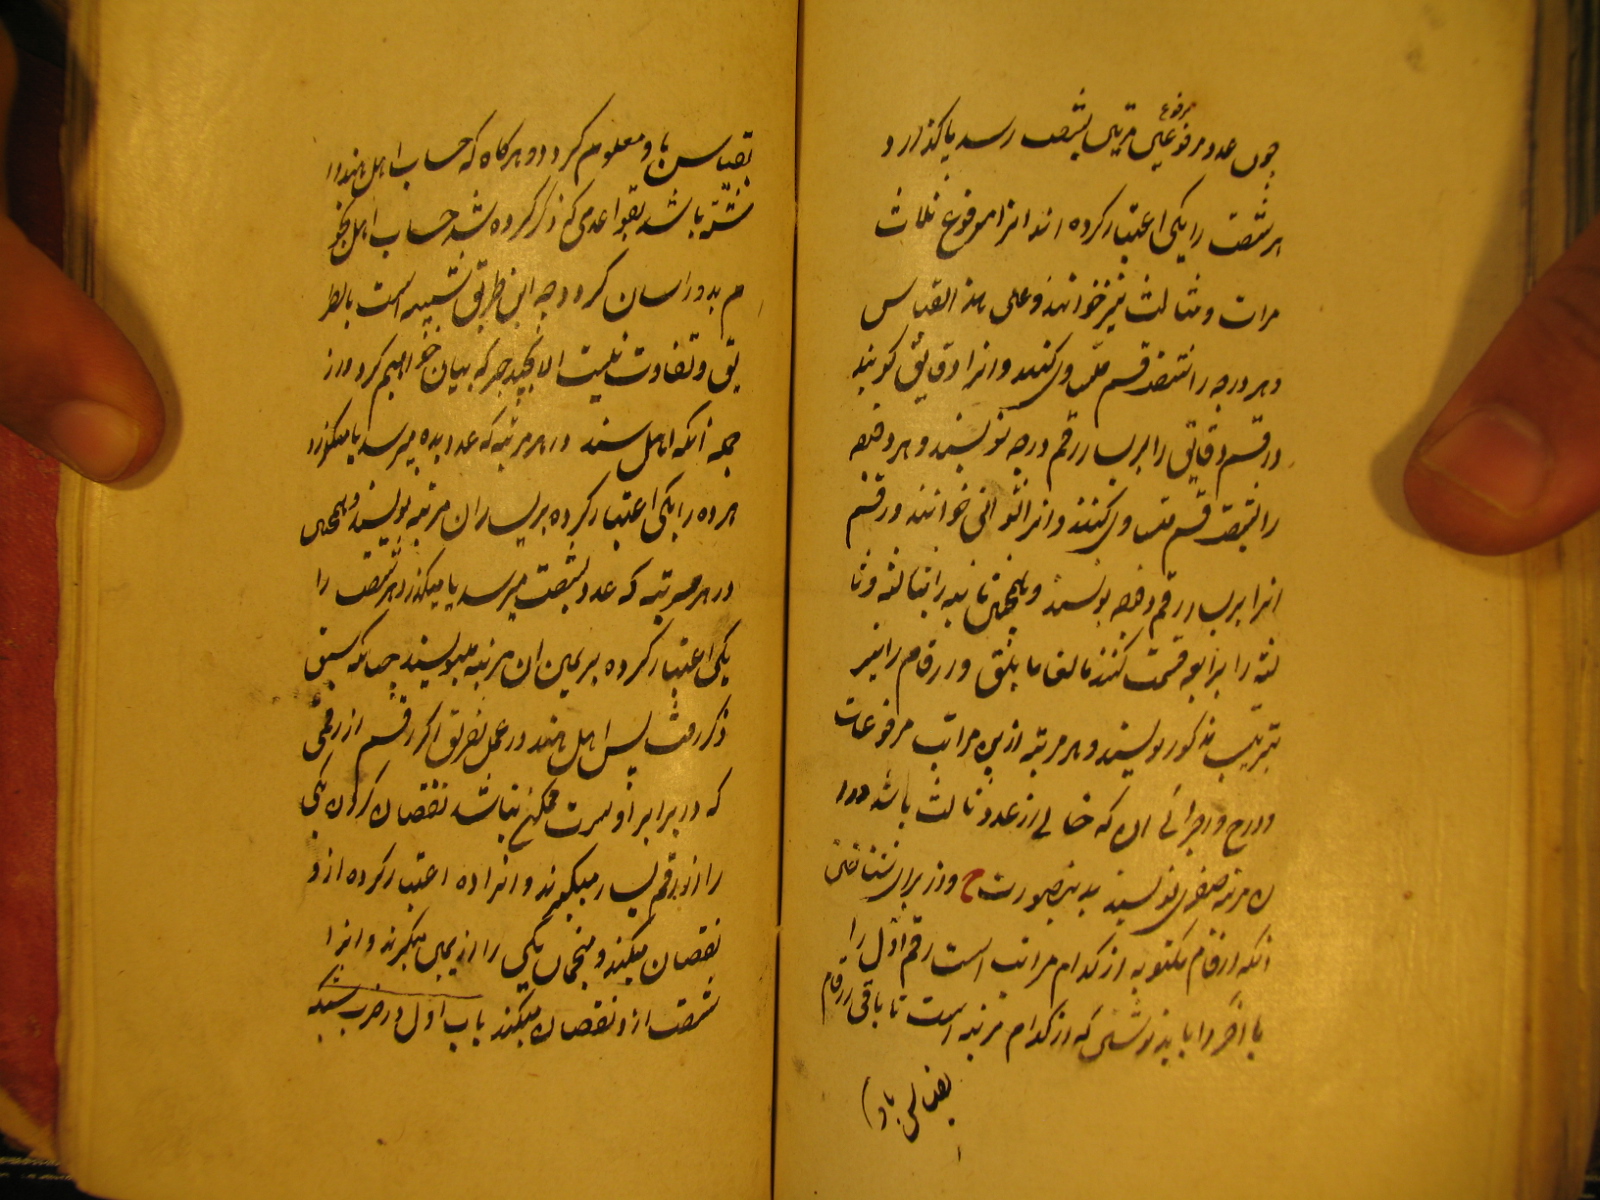 مرفوع
چون عدد مرفوع مرتین بشصت رسد یا گذارد
هر شصت را یکی اعتبار کرده اند انرا مرفوع ثلاث
مرات و مثالث نیز خوانند و علی هذا القیاس
و هر درجه را شصت قسم متساوی کنند و انرا دقایق گویند
و رقم دقایق را بریسار رقم درجه نویسند و هر دقیقه
را بشصت قسم متساوی کنند و انرا ثوانی خوانند و رقم
انرا بریسار رقم دقیقه نویسند و همچنین ثانیه را بثالثه و ثا
لثه را برابعه قسمت کنند بالغا ما بلغ و ارقام را نیز
بترتیب مذکور نویسند و هر مرتبه ازین مراتب مرفوعات
و درج و اجزائی ان که خالی از عدد باشد در
ان مرتبه صفری نویسند بدینصورت ح و از برای شناختن
انکه ارقام مکتوبه از کدام مراتب است رقم اول را
یا اخر را باید نوشتن که از کدام مرتبه است تا باقی ارقام
بقیاس باو
بقیاس باو معلوم کردد و هرگاه که حساب اهل هند دا
نسته باشد بقواعدی که ذکر کرده شد حساب اهل نجو
م بدو اسان کردد چه این طریق شبیه است بانطر
یق و تفاوت نیست الا بچند چیز که بیان خواهیم کرد و از
جمله انکه اهل هند در هر مرتبه که عدد بده میرسد یا میگذرد
هر ده را یکی اعتبار کرده بریسار ان مرتبه نویسند و منجمین
در هر مرتبه که عدد بشصت میرسد یا میگذرد هر شصت را
یکی اعتبار کرده بریمین ان مرتبه مینویسند چنانکه سبق
ذکر رفت پس اهل هند در عمل تفریق اکر رقم از رقمی
که در برابر اوست ممکن نباشد نقصان کردن یکی
را از رقم یسار میگیرند و انرا ده اعتبار کرده ازو
نقصان میکنند و منجمان یکی را از یمین میگیرند و انرا
شصت ازو نقصان میکنند باب اول در ضرب